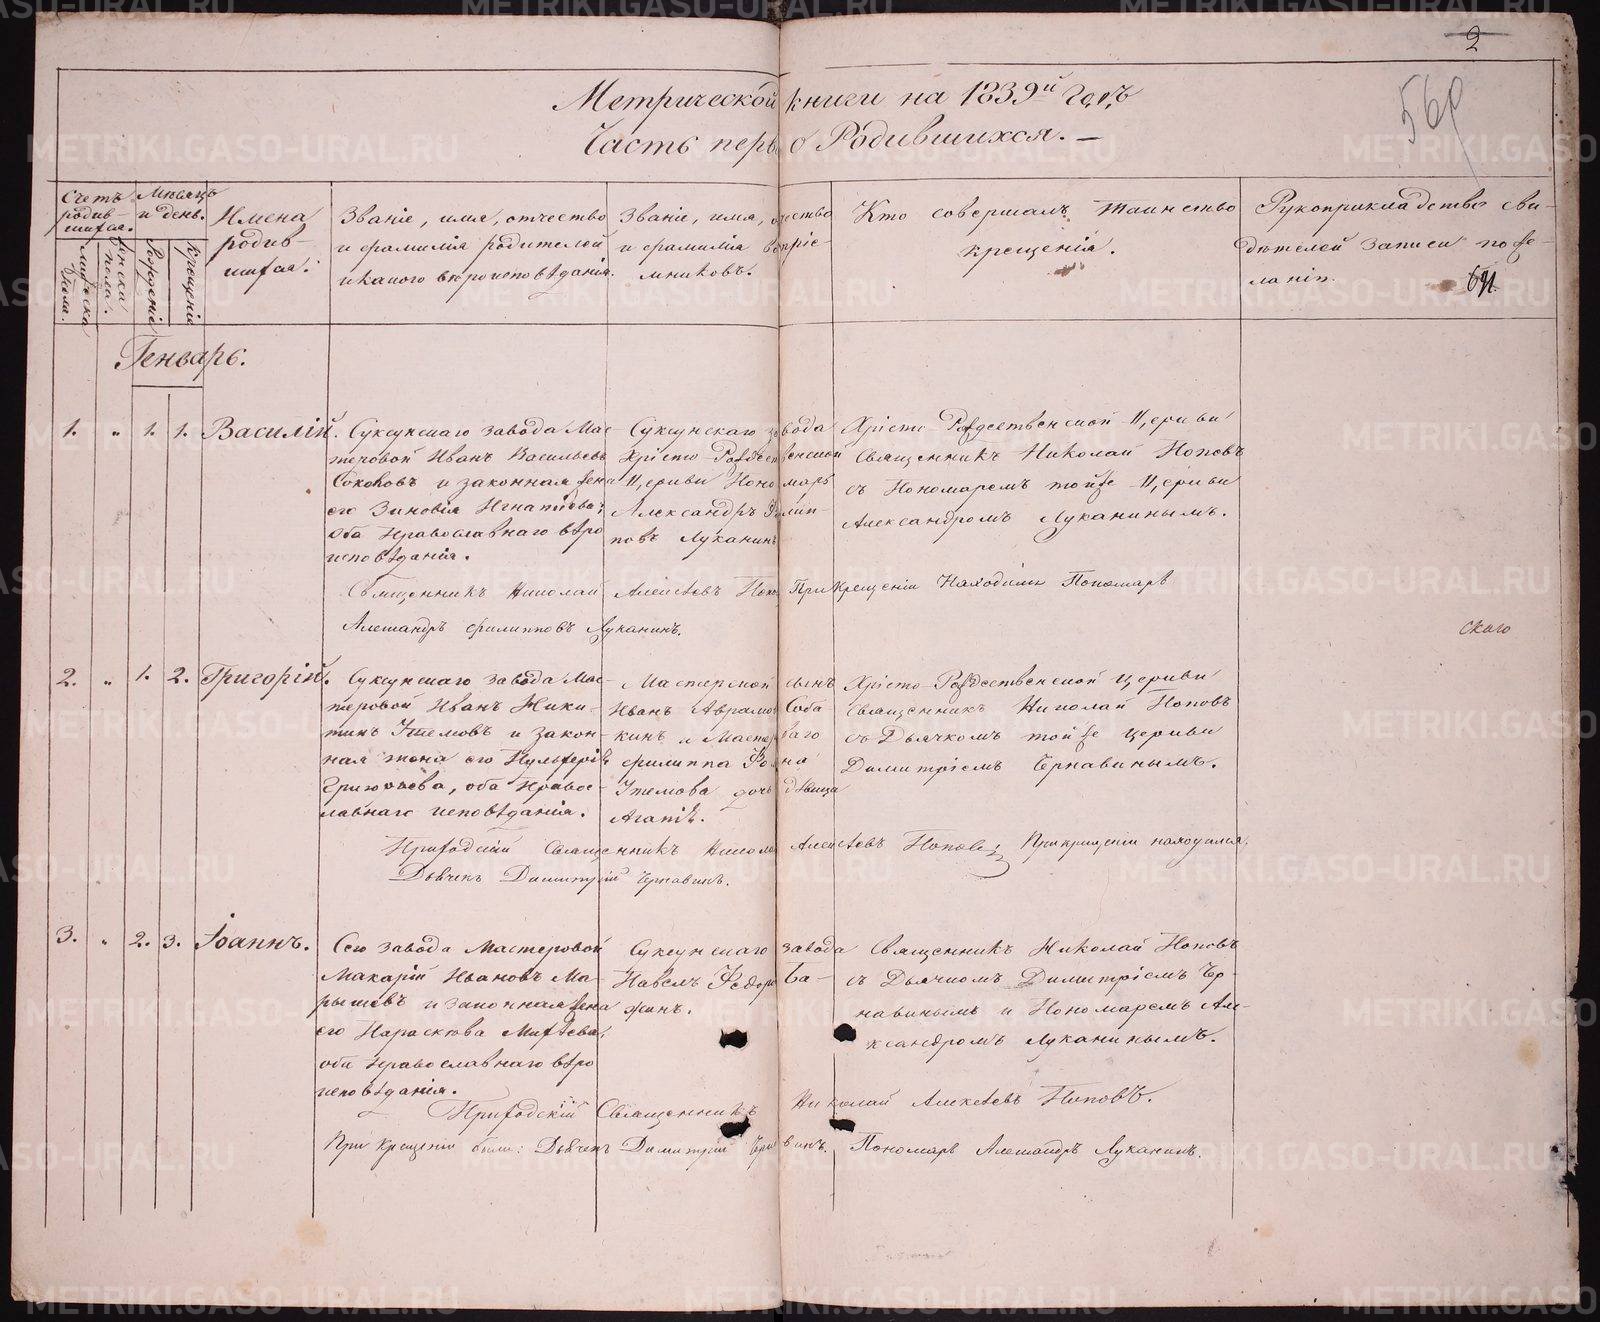 2
560
Метрической книги на 1839й Годъ
Часть перв о Родившихся. —
Счетъ родив- шихся.
Мѣсяцъ и день.
Мужеска пола.
Женска пола.
Рожденія
Крещенія
Имена родив- шихся.
Званіе, имя, отчество
и фамилія родителей
и какого вѣроисповѣданія.
Званіе, имя, отчество
и фамилія воспріе-
мниковъ.
Кто совершалъ таинство
крещенія.
Рукоприкладство сви-
дѣтелей записи по же-
ланію.
Генварь.
1. „ 1. 1. Василій.
Суксунскаго завода Мас-
теровой Иванъ Васильевъ
и законная жена
его Зиновія Игнатіева;
оба Православнаго вѣро
исповѣданія.
Суксунскаго завода
Христо-Рождественской
Церкви Пономарь
Александръ Филип-
повъ Луканинъ
Христо-Рождественской Церкви
Священникъ Николай Поповъ
съ Пономаремъ тойже Церкви
Александромъ Луканинымъ.
Священникъ Николай Алексѣевъ Поповъ При Крещеніи Находился Пономарь
Александръ Филипповъ Луканинъ.
скаго
2. „ 1. 2. Григорій.
Суксунскаго завода Мас-
теровой Иванъ Ники-
тинъ Утемовъ и закон-
ная жена его Пульхерія
Григорьева, оба Правос-
лавнаго исповѣданія.
Мастерской сынъ
Иванъ Аврамовъ Соба-
кинъ и Мастероваго
Филиппа Фомина
Утемова дочь дѣвица
Агапія.
Христо-Рождественской Церкви
Священникъ Николай Поповъ
съ Дьячкомъ тойже Церкви
Димитріемъ Чернавинымъ.
Приходскій Священникъ Николай Алексѣевъ Поповъ; При крещеніи находился
Дьячекъ Димитрій Чернавинъ.
3. „ 2. 3. Іоаннъ.
Сего завода Мастеровой
Макарій Ивановъ Ма-
рышевъ и законная жена
его Параскева Михѣева,
оба Православнаго вѣро
исповѣданія.
Суксунскаго завода
Павелъ Федоровъ Ба-
жинъ.
Священникъ Николай Поповъ
съ Дьячкомъ Димитріемъ Чер-
навинымъ и Пономаремъ Але-
ксандромъ Луканинымъ.
Приходскій Священникъ Николай Алексѣевъ Поповъ.
При Крещеніи были: Дьячекъ Димитрій Чернавинъ, Пономарь Александръ Луканинъ.
METRIKI.GASO-URAL.RU